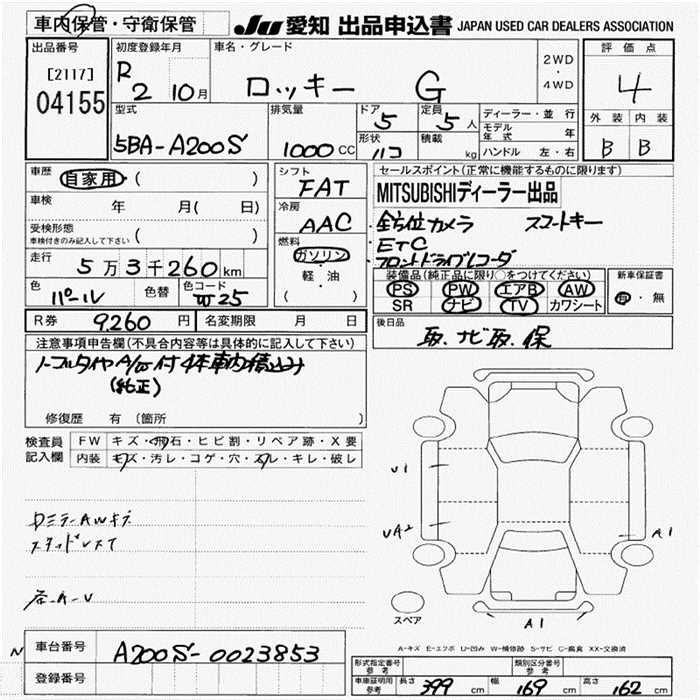 車内保管・守衛保管
JU 愛知 出品申込書 JAPAN USED CAR DEALERS ASSOCIATION
出品番号 [2117] 04155
初度登録年月 R2 10月
車名・グレード ロッキー G
2WD・4WD
評価点 4
外装 B 内装 B
型式 5BA-A200S
排気量 1000CC
ドア 5
形状 ハコ
定員 5人
積載 kg
ディーラー・並行
モデル年式 年
ハンドル 左・右
車歴 自家用 ( )
車検 年 月( 日)
受検形態 車検付きのみ記入して下さい ( )
走行 5万3千260km
色 パール 色替
色コード W25
シフト FAT
冷房 AAC
燃料 ガソリン・軽・油 ( )
セールスポイント(正常に機能するものに限ります)
MITSUBISHIディーラー出品
・全方位カメラ ・スマートキー
・ETC
・フロントドライブレコーダ
装備品(純正品に限り○をつけてください)
PS PW エアB AW
SR ナビ TV カワシート
新車保証書 有・無
R券 9260円
名変期限 月 日
後日品 取、ナビ取、保
注意事項申告欄(不具合内容等は具体的に記入して下さい)
(純正)
修復歴 有 (箇所 )
検査員記入欄
FW キズ・飛石・ヒビ割・リペア跡・X要
内装 キズ・汚レ・コゲ・穴・スレ・キレ・破レ
DミラーAWキズ
U1
UA2
A1
A1
スペア
A-キズ E-エクボ U-凹み W-補修跡 S-サビ C-腐食 XX-交換済
N
車台番号 A200S-0023853
登録番号
形式指定番号 参考
類別区分番号 参考
車庫証明用 参考 長さ 399cm 幅 169cm 高さ 162cm